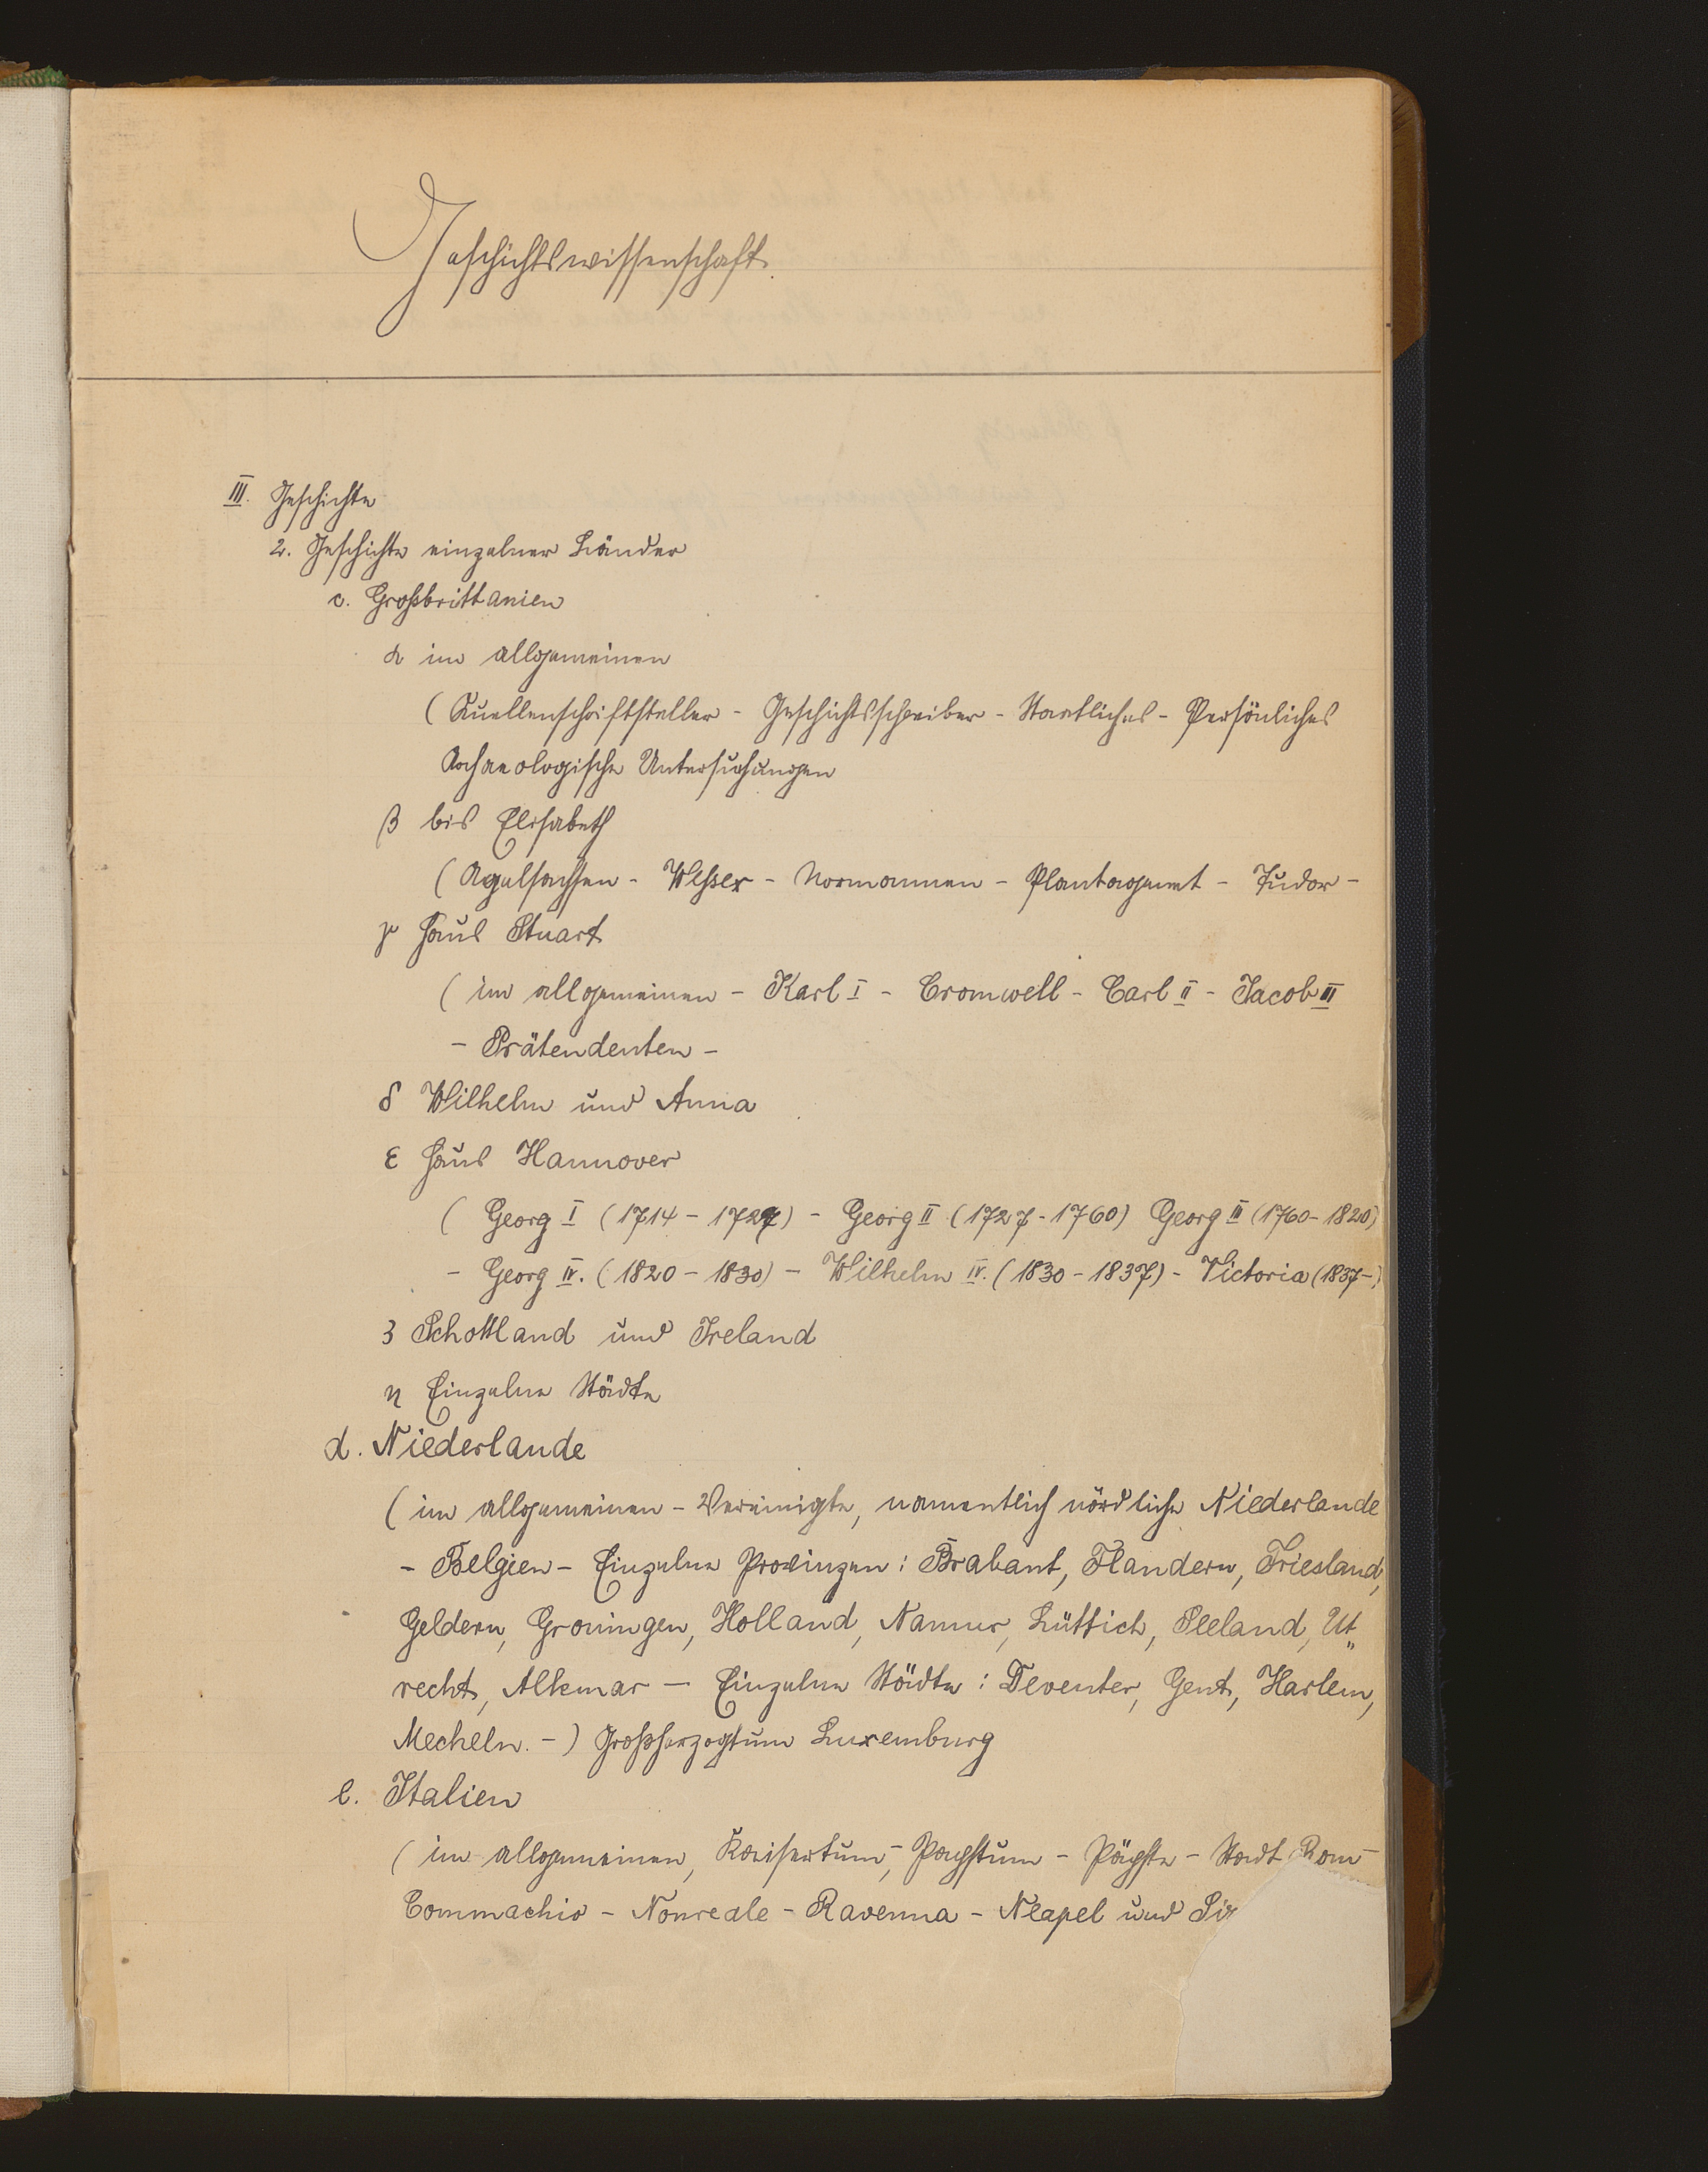 Geschichtswissenschaft.
III. Geschichte
2. Geschichte einzelner Länder
c. Großbrittanien
α im allgemeinen
(Quellenschriftsteller - Geschichtsschreiber - Staatliches - Persönliches
Archaeologische Untersuchungen
β bis Elisabeth
(Agelsachsen - Wessex - Normannen - Plantagenet - Tudor -
γ Haus Stuart
(im allgemeinen - Karl I - Cromwell - Carl II - Jacob III
- Prätendenten -
δ Wilhelm und Anna
ε Haus Hannover
( Georg I (1714 - 1727) - Georg II (1727 - 1760) Georg III (1760 - 1820)
- Georg IV. (1820 - 1830) - Wilhelm IV. (1830 - 1837) - Victoria (1837 - )
ζ Schottland und Ireland
η Einzelne Städte
d. Niederlande
(im allgemeinen - Vereinigte, namentlich nördliche Niederlande
- Belgien - Einzelne Provinzen: Brabant, Flandern, Friesland,
Geldern, Groningen, Holland, Namur, Lüttich, Seeland, Ut„
recht, Alkmar - Einzelne Städte: Deventer, Gent, Harlem,
Mecheln. -) Großherzogtum Luxemburg
e. Italien
(im allgemeinen, Kaisertum -, Papsttum - Päpste - Stadt Rom -
Commachio - Nonreale - Ravenna - Neapel und